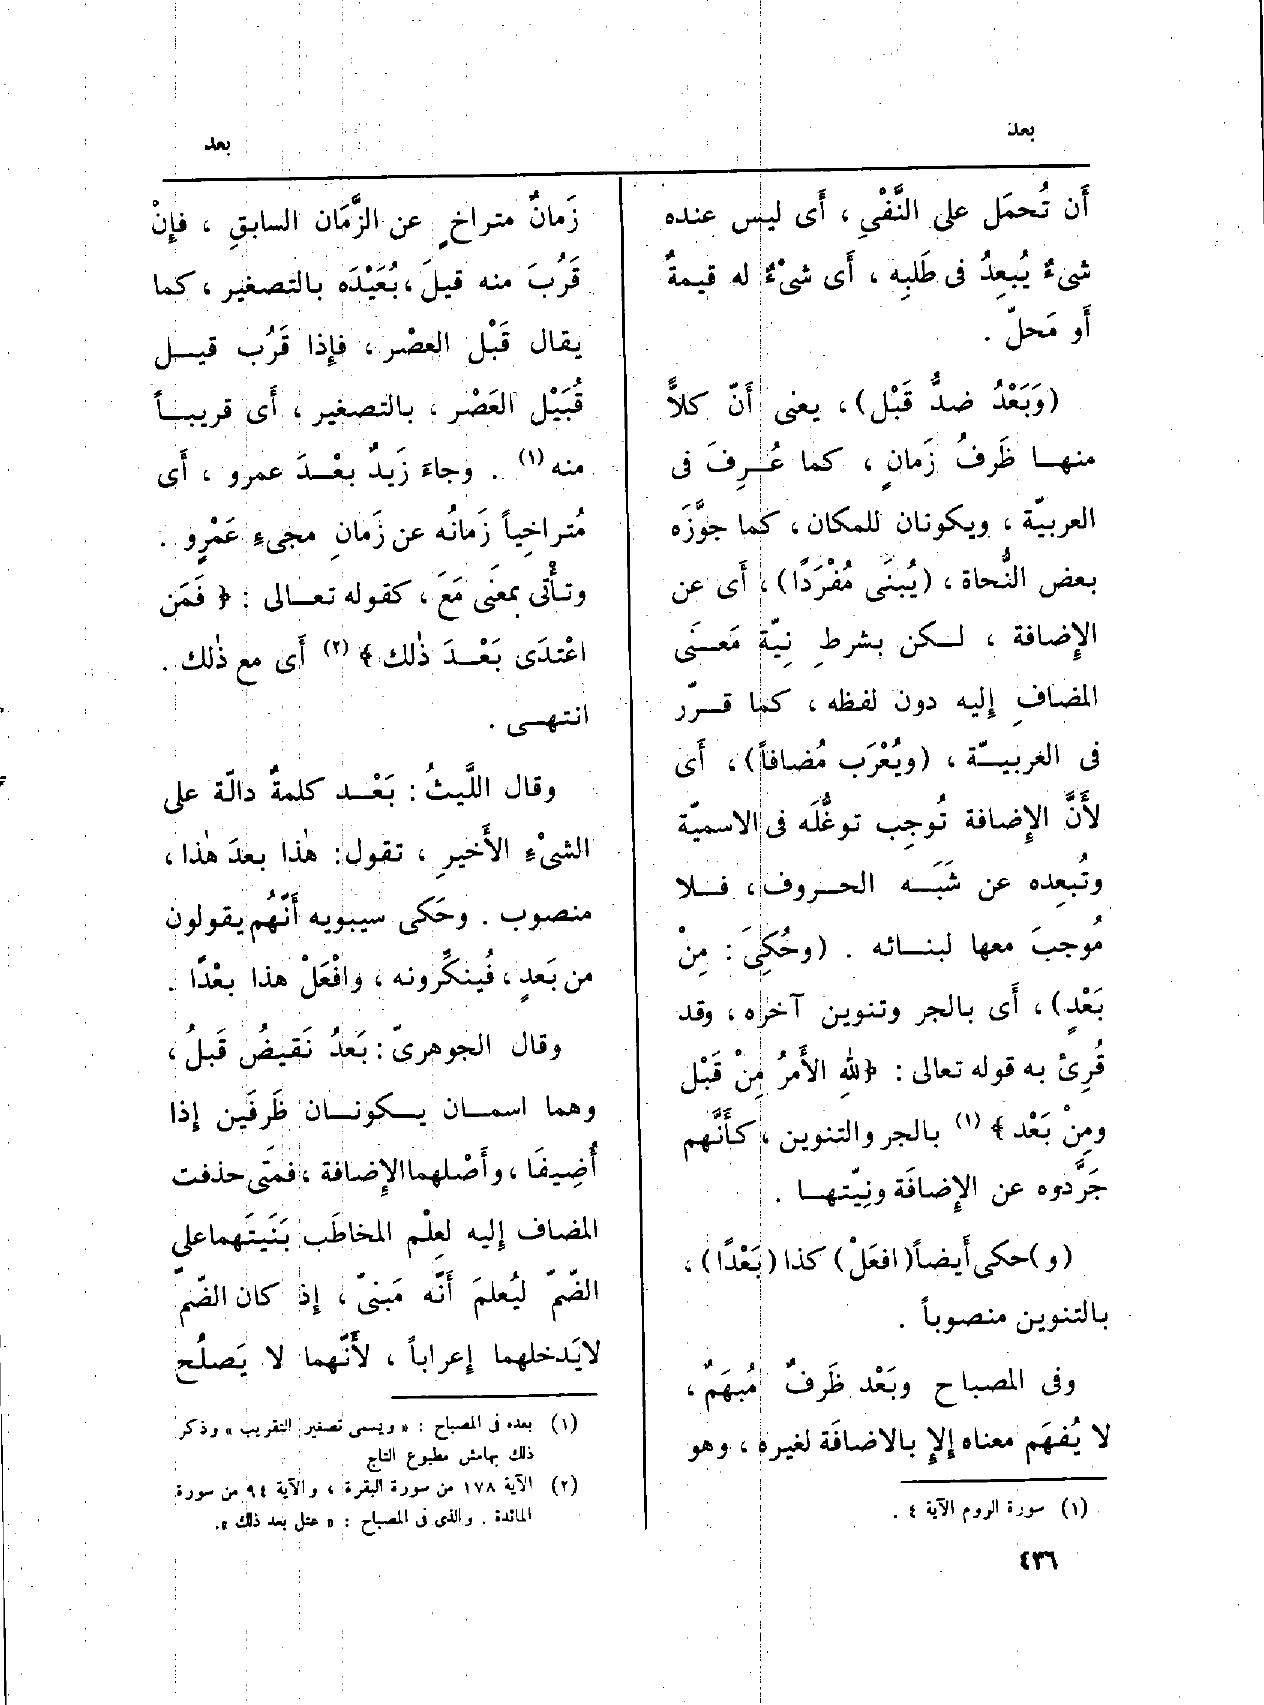 بعد
بعد
أَن تُحمَل على النَّفْىِ ، أَى ليس عنده
شىءٌ يُبعِدُ فى طَلبِه ، أَى شىْءٌ له قيمةٌ
أَو مَحلّ .
(وَبَعْدُ ضدُّ قَبْل) ، يعنى أَنّ كلاًّ
منهـا ظَرفُ زَمانٍ ، كما عُـرِفَ فى
العربيّة ، ويكونان للمكان ، كما جوَّزَه
بعض النُّحاة ، (يُبنَى مُفْرَدًا) ، أَى عن
الإِضافة ، لـكن بشرطِ نِيّة مَعـنَى
المضافِ إِليه دون لفظه ، كما قـرّر
فى العربيـّة ، (ويُعْرَب مُضافاً) ، أَى
لأَنَّ الإِضافة تُوجِب توغُّلَه فى الاسميّة
وتُبعِده عن شَبَـه الحـروف ، فـلا
مُوجبَ معها لبنـائه . (وحُكِىَ : مِنْ
بَعْدٍ) ، أَى بالجر وتنوين آخره ، وقد
قُرِئْ به قوله تعالى : ﴿لِلهِ الأَمرُ مِنْ قَبْل
ومِنْ بَعْد﴾ (١) بالجر والتنوين ، كأَنَّهم
جَرَّدوه عن الإِضافَة ونِيّتهـا .
(و) حكى أَيضاً (افعَلْ) كذا (بَعْدًا) ،
بالتنوين منصوباً .
وفى المصباح وبَعْد ظَرفٌ مُبهَمٌ ،
لا يُفهَم معناه إِلاّ بالاضافَة لغيرِه ، وهو
(١) سورة الروم الآية ٤ .
٤٣٦
زَمانٌ متراخٍ عن الزَّمَان السابقِ ، فإِنْ
قَرُبَ منه قيلَ ، بُعَيْدَه بالتصغير ، كما
يقال قَبْل العصْر ، فإِذا قَرُب قيـل
قُبَيْل العَصْر ، بالتصغير ، أَى قريبـاً
منه (١) . وجاءَ زَيدٌ بعْـدَ عمرو ، أَى
مُتراخِياً زَمانُه عن زَمانِ مجىءِ عَمْرٍو .
وتـأْتى بمعنَى مَعَ ، كقوله تعـالى : ﴿ فَمَن
اعْتدَى بَعْـدَ ذٰلك ﴾ (٢) أَى مع ذٰلك .
انتهـى .
وقال اللَّيثُ : بَعْـد كلمةٌ دالّة على
الشىْءِ الأَخيرِ ، تقول : هٰذا بعدَ هٰذا ،
منصوب . وحَكى سيبويه أَنّهُم يقولون
من بَعدٍ ، فُينكِّرونه ، وافْعَلْ هذا بعْدًا .
وقال الجوهرىّ : بَعدُ نَقيضُ قَبلُ ،
وهما اسمـان يـكونـان ظَرفَين إِذا
أُضِيفَا ، وأَصْلهما الإِضافة ، فمتَى حذفت
المضاف إِليه لعِلْم المخاطَب بَنَيتَهما على
الضّمّ ليُعلمَ أَنّه مَبنىّ ، إِذ كان الضّمّ
لا يَدخلهما إِعراباً ، لأَنّهما لا يَصلُح
(١) بعده فى المصباح : « ويسمى تصغير التقريب » وذكر
ذلك بهامش مطبوع التاج
(٢) الآية ١٧٨ من سورة البقرة ، والآية ٩٤ من سورة
المائدة . والذى فى المصباح : « عتل بعد ذلك ».